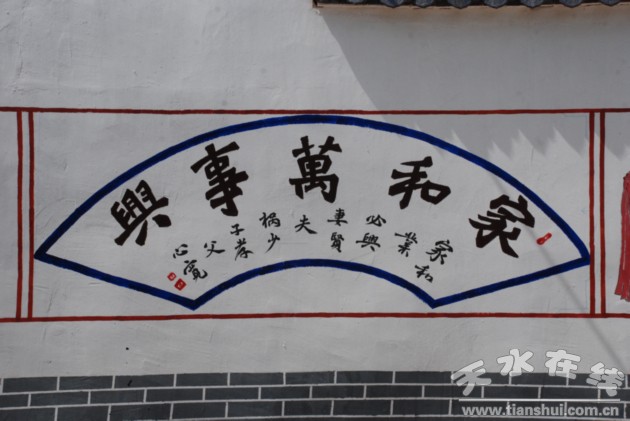 家和萬事興
家和
業
必興
妻賢
夫
禍少
子孝
父
心寬
天水在线
www.tianshui.com.cn